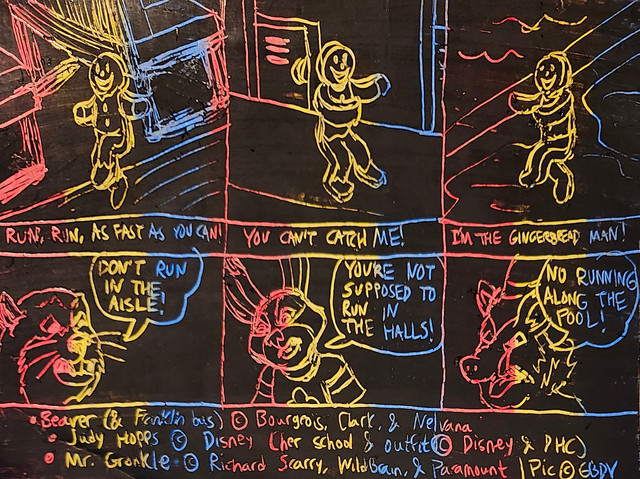 RUN, RUN, AS FAST AS YOU CAN!
YOU CAN'T CATCH ME!
I'M THE GINGERBREAD MAN!
DON'T RUN
IN THE
AISLE!
YOU'RE NOT
SUPPOSED TO
RUN IN
THE HALLS!
NO RUNNING
ALONG THE
POOL!
• Beaver (& Franklin bus) © Bourgeois, Clark, & Nelvana
• Judy Hopps © Disney (her school & outfit © Disney & DHC)
• Mr. Gronkle © Richard Scarry, WildBrain, & Paramount | Pic © EGDV